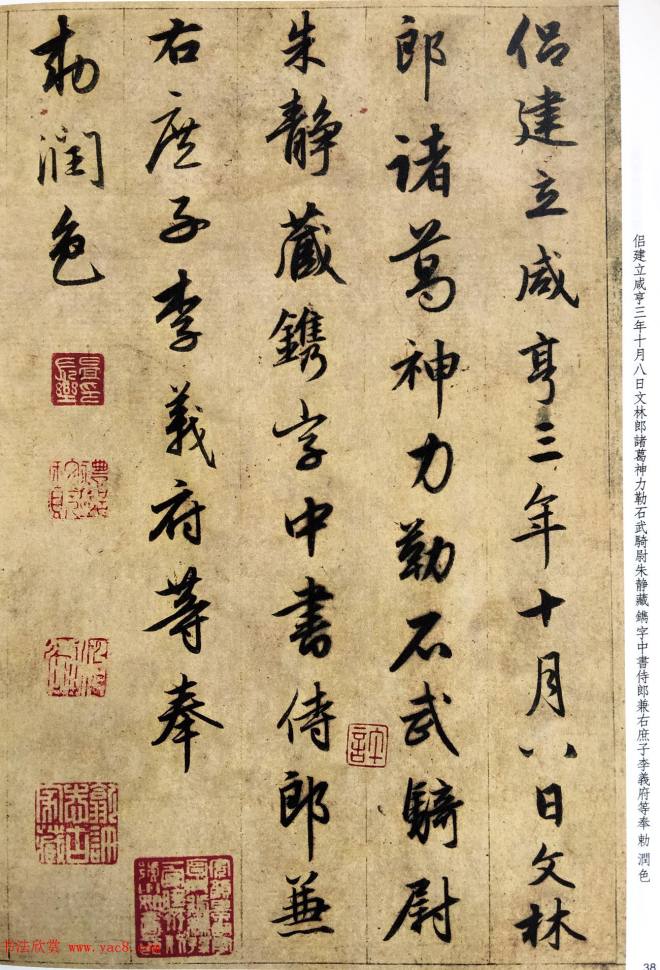 侣建立咸亨三年十月八日文林
郎諸葛神力勒石武騎尉
朱静藏鐫字中書侍郎兼
右庶子李義府等奉
勅潤色
侣建立咸亨三年十月八日文林郎諸葛神力勒石武騎尉朱静藏 鐫字中書侍郎兼右庶子李義府等奉 勅 潤色
書法欣赏 www.yac8.com
38